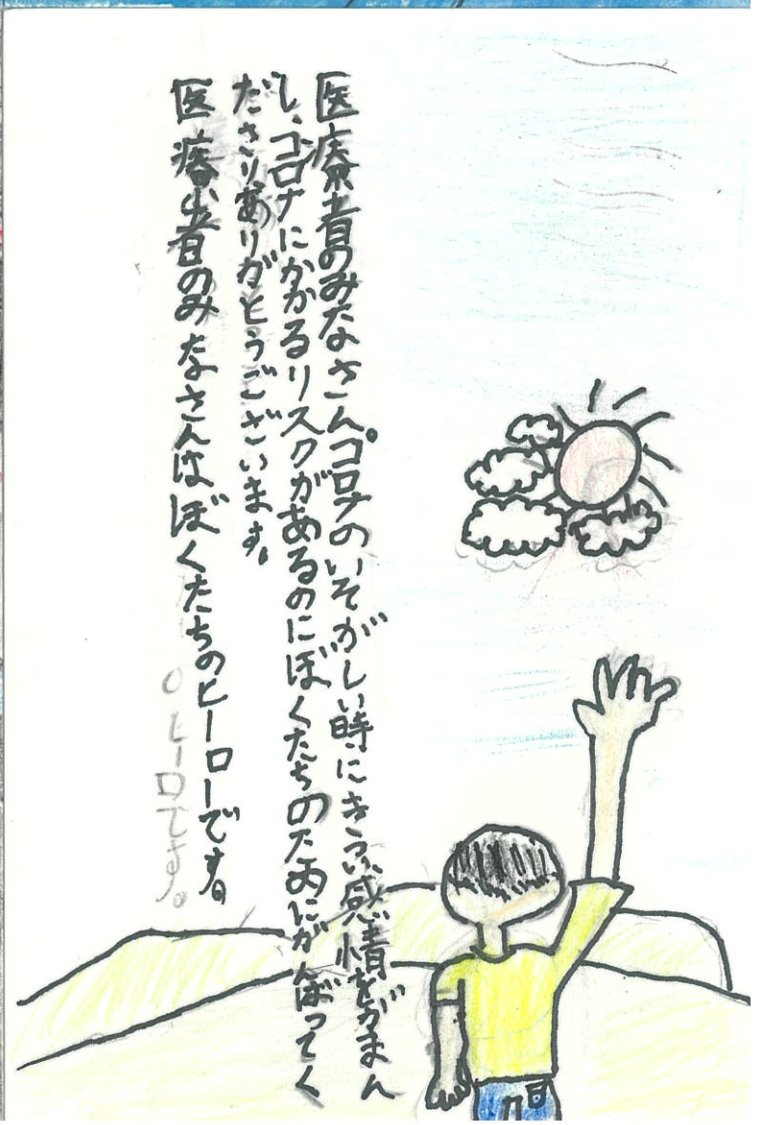 医療者のみなさん。コロナのいそがしい時にきょうふ感情をがまん
し、コロナにかかるリスクがあるのにぼくたちのためにがんばってく
ださりありがとうございます。
医療者のみなさんはぼくたちのヒーローです。
ヒーロです。